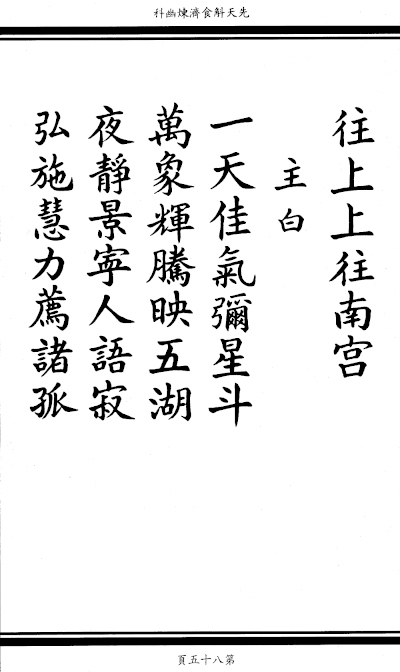 先天斛食濟煉幽科
往上上往南宮
主白
一天佳氣彌星斗
萬象輝騰映五湖
夜靜景寧人語寂
弘施慧力薦諸孤
第八十五頁